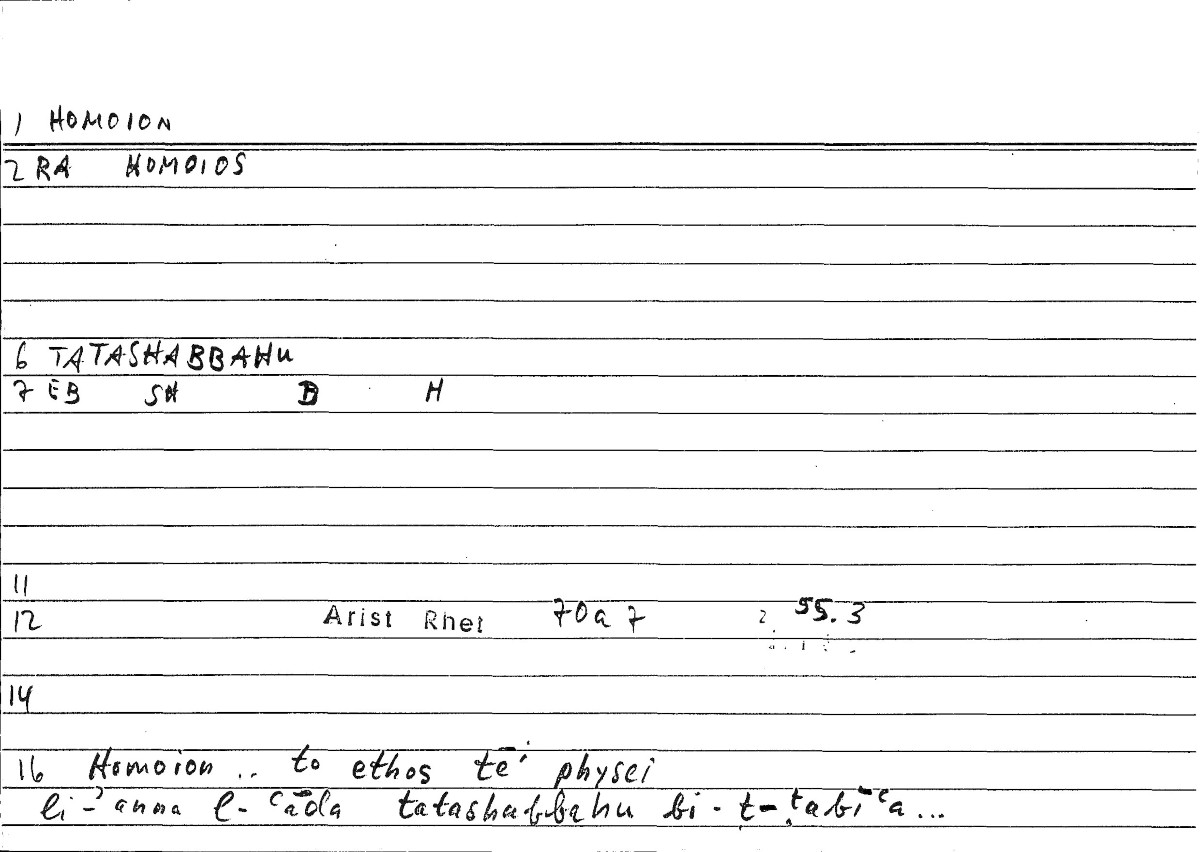 1 HOMOION
2 RA HOMOIOS
6 TATASHABBAHU
7 EB SH B H
11
12 Arist Rhet 70a7 2. 55.3
14
16 Homoion .. to ethos tē̓ physei
li-ʾanna l-ʿāda tatashabbahu bi-ṭ-ṭabīʿa...